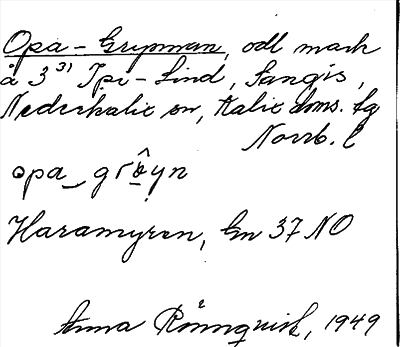 Opa-Grynnan, odl mark
å 3 3) Ipi-Lind, Sangis,
Nederkalix sn, Kalix dms. lg
Norrb. l
opa_grôyn
Haramyren, En 37 NO
Anna Rönnquist, 1949